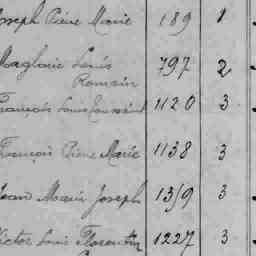 Joseph Pierre Marie 189 1
Magloire Louis 797 2
Romain
François Louis Toussaint 1120 3
François Pierre Marie 1138 3
Jean Marie Joseph 1319 3
Victor Louis Florentin 1227 3